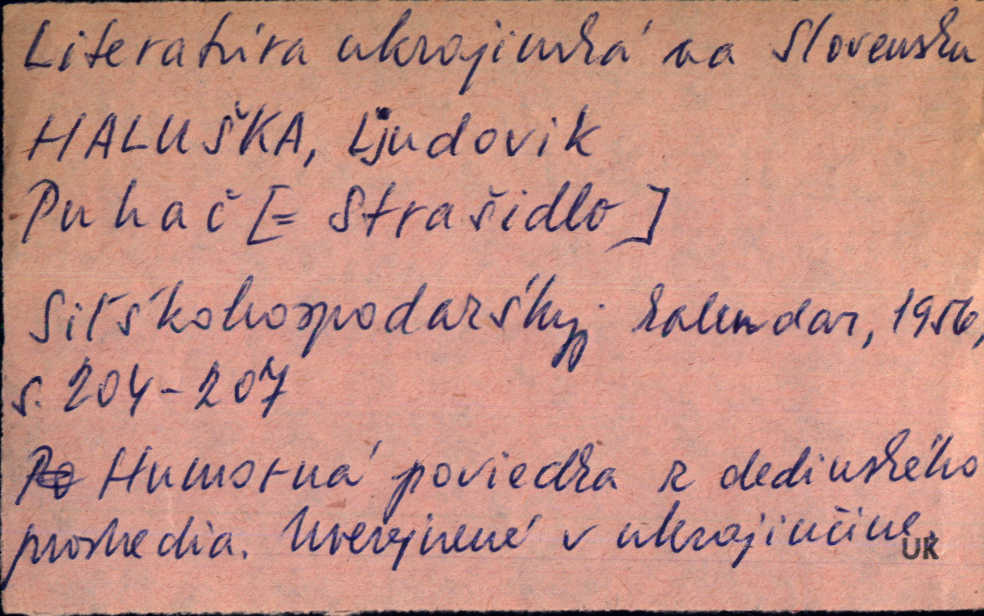 Literatúra ukrajinská na Slovensku
HALUŠKA, Ljudovik
Puhač [= Strašidlo]
Siľśkohospodarśkyj kalendar, 1956,
s. 204-207
Humorná poviedka z dedinského
prostredia. Uverejnené v ukrajinčine.
UK